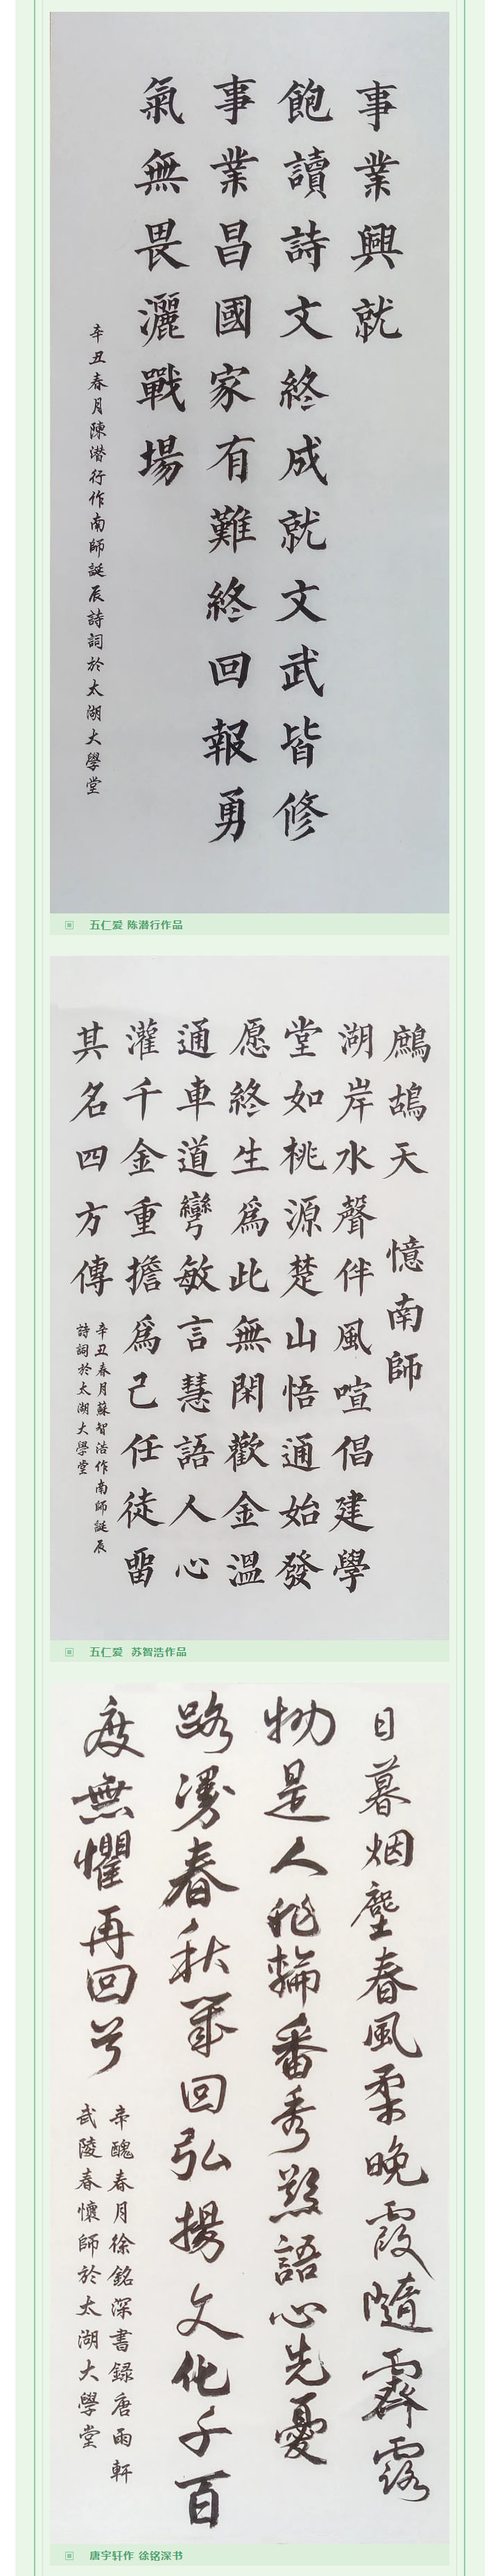 事業興就
飽讀詩文終成就文武皆修
事業昌國家有難終回報勇
氣無畏灑戰場
辛丑春月陳潛行作南師誕辰詩詞於太湖大學堂
五仁爱 陈潜行作品
鷓鴣天 憶南師
湖岸水聲伴風喧倡建學
堂如桃源楚山悟通始發
愿終生爲此無閑歡金溫
通車道彎敏言慧語人心
灌千金重擔爲己任徒畱
其名四方傳
辛丑春月蘇智浩作南師誕辰
詩詞於太湖大學堂
五仁爱 苏智浩作品
日暮烟塵春風柔晚霞隨霽露
物是人非輪番秀語心先憂
路漫春秋回弘揚文化千百
度無懼再回首
辛醜春月徐銘深書録唐雨軒
武陵春懷師於太湖大學堂
唐宇轩作 徐铭深书